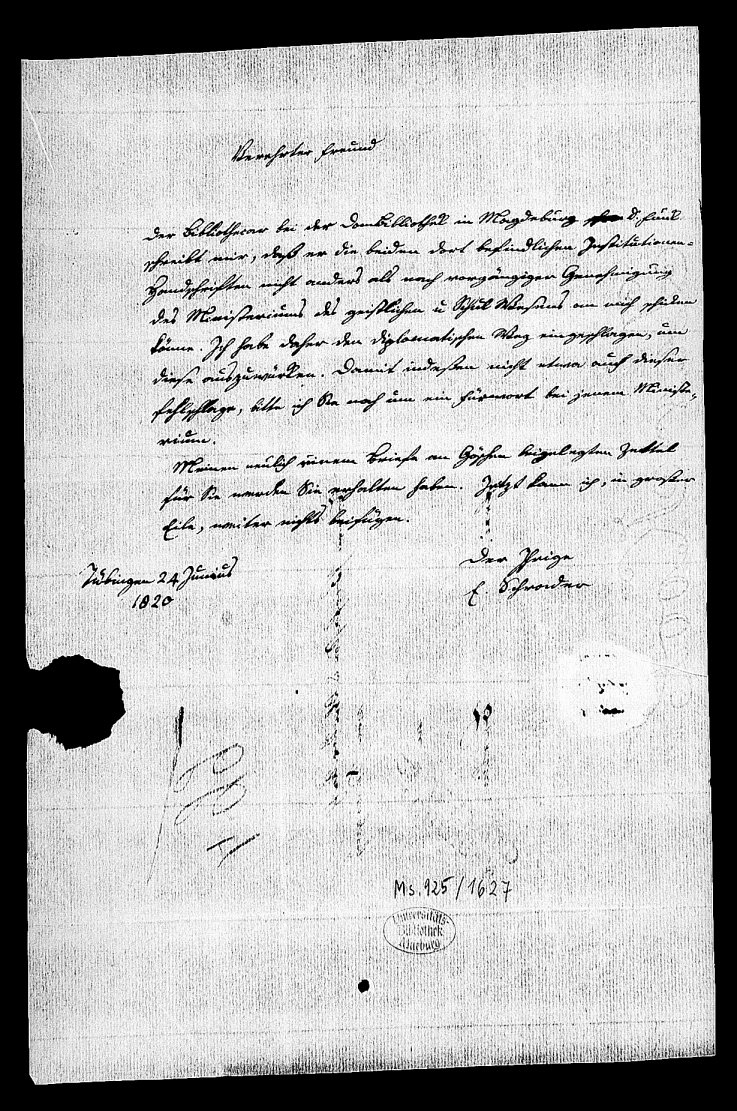 Verehrter Freund
Der Bibliothecar bei der DomBibliothek in Magdeburg D. Funk
schreibt mir, daß er die beiden dort befindlichen Institutionen-
Handschriften nicht anders als nach vorgängiger Genehmigung
des Ministeriums des geistlichen u Schul Wesens an mich schicken
könne. Ich habe daher den diplomatischen Weg eingeschlagen, um
diese auszuwürken. Damit indeßen nicht etwa auch dieser
fehlschlage, bitte ich Sie noch um ein Fürwort bei jenem Ministe-
rium.
Meinen neulich einem Briefe an Göschen beigelegten Zettel
für Sie werden Sie erhalten haben. Jetzt kann ich, in großer
Eile, weiter nichts beifügen.
Der Ihrige
E. Schrader
Tübingen 24 Junius
1820
Ms. 925/1627
Universitäts-
Bibliothek
Marburg